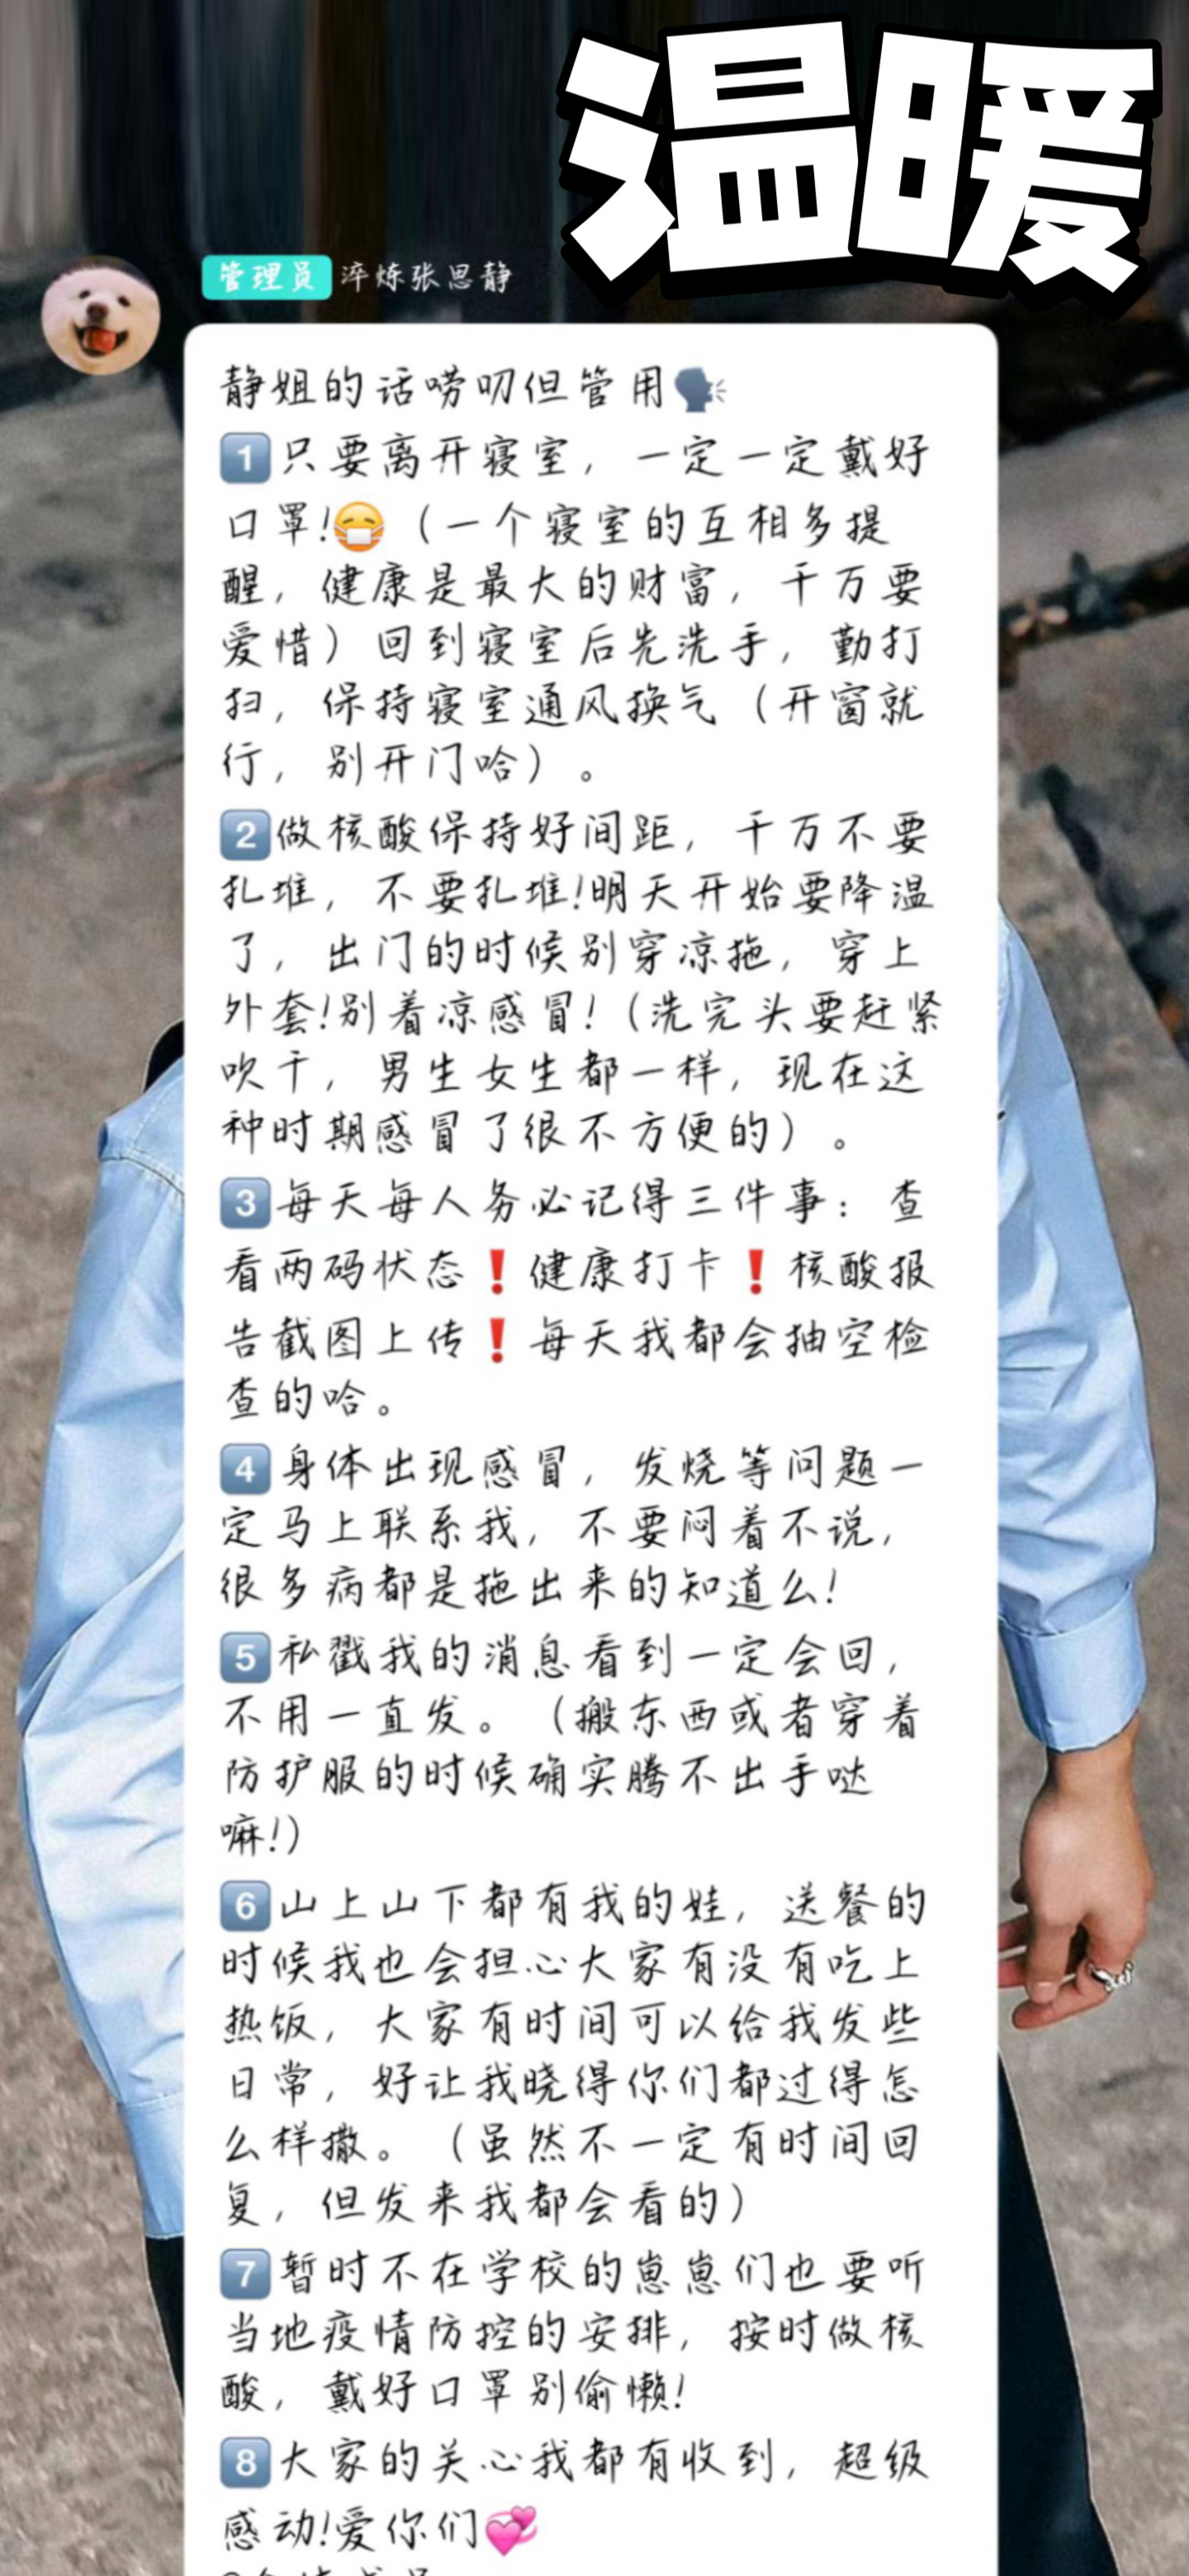 温暖
管理员 淬炼张思静
静姐的话唠叨但管用🗣
1️⃣只要离开寝室，一定一定戴好
口罩!😷（一个寝室的互相多提
醒，健康是最大的财富，千万要
爱惜）回到寝室后先洗手，勤打
扫，保持寝室通风换气（开窗就
行，别开门哈）。
2️⃣做核酸保持好间距，千万不要
扎堆，不要扎堆!明天开始要降温
了，出门的时候别穿凉拖，穿上
外套!别着凉感冒!（洗完头要赶紧
吹干，男生女生都一样，现在这
种时期感冒了很不方便的）。
3️⃣每天每人务必记得三件事：查
看两码状态❗健康打卡❗核酸报
告截图上传❗每天我都会抽空检
查的哈。
4️⃣身体出现感冒，发烧等问题一
定马上联系我，不要闷着不说，
很多病都是拖出来的知道么!
5️⃣私戳我的消息看到一定会回，
不用一直发。（搬东西或者穿着
防护服的时候确实腾不出手哒
嘛!）
6️⃣山上山下都有我的娃，送餐的
时候我也会担心大家有没有吃上
热饭，大家有时间可以给我发些
日常，好让我晓得你们都过得怎
么样撒。（虽然不一定有时间回
复，但发来我都会看的）
7️⃣暂时不在学校的崽崽们也要听
当地疫情防控的安排，按时做核
酸，戴好口罩别偷懒!
8️⃣大家的关心我都有收到，超级
感动!爱你们💞